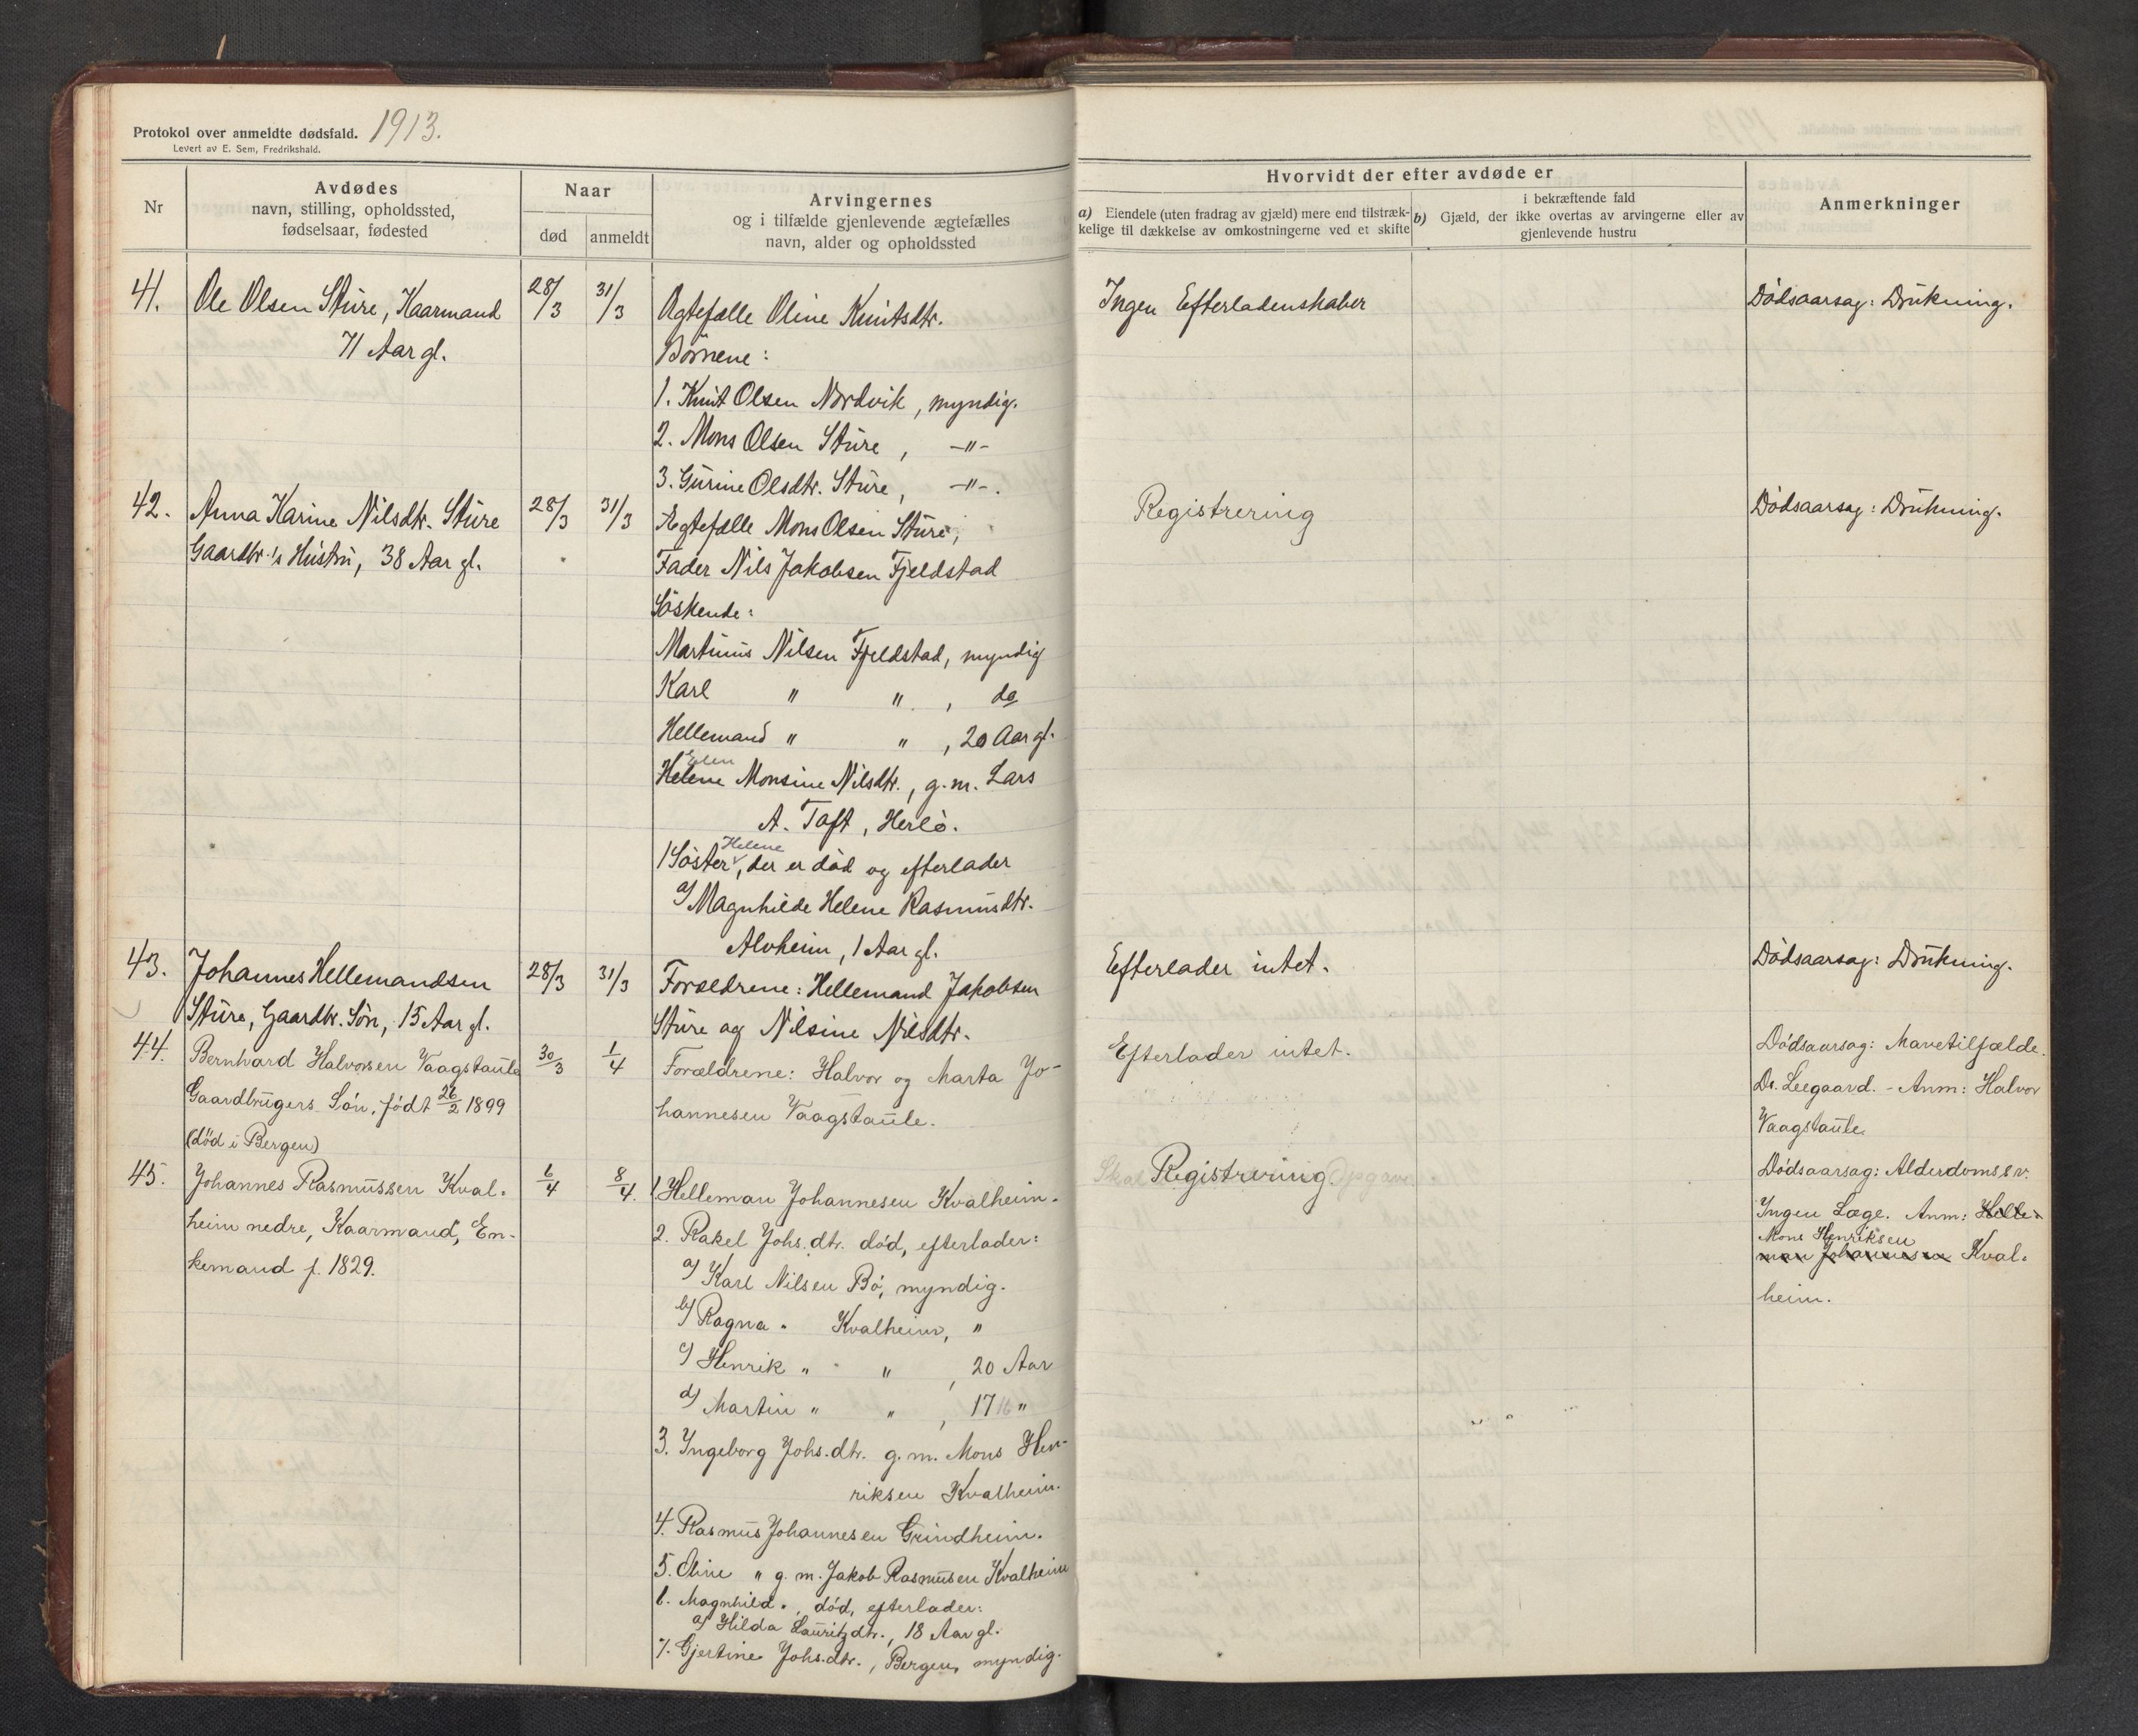 Protokol over anmeldte dødsfald. 1913.
Levert av E. Sem, Fredrikshald.
Nr
Avdødes
navn, stilling, opholdssted,
fødselsaar, fødested
Naar
død
anmeldt
Arvingernes
og i tilfælde gjenlevende ægtefælles
navn, alder og opholdssted
Hvorvidt der efter avdøde er
a) Eiendele (uten fradrag av gjæld) mere end tilstræk-
kelige til dækkelse av omkostningerne ved et skifte
i bekræftende fald
b) Gjæld, der ikke overtas av arvingerne eller av
gjenlevende hustru
Anmerkninger
41.
Ole Olsen Sture, Kaarmand
71 Aar gl.
28/3
31/3
Ægtefælle Oline Knutsdtr.
Børnene:
1. Knut Olsen Nordvik, myndig.
2. Mons Olsen Sture, -"-
3. Gurine Olsdtr. Sture, -"-.
Ingen Efterladenskaber
Dødsaarsag: Drukning.
42.
Anna Karine Nilsdtr. Sture
Gaardbr.'s Hustru, 38 Aar gl.
28/3
31/3
Ægtefælle Mons Olsen Sture,
Fader Nils Jakobsen Fjeldstad
Søskende:
Martinus Nilsen Fjeldstad, myndig
Karl " " , do
Hellemand " " , 20 Aar gl.
Elen
Helene Monsine Nilsdtr., g.m. Lars
A. Toft, Herlø.
Helene
1 Søster, der er død og efterlader
a) Magnhilde Helene Rasmusdtr.
Alvheim, 1 Aar gl.
Registrering
Dødsaarsag: Drukning.
43.
Johannes Hellemandsen
Sture, Gaardbr. Søn, 15 Aar gl.
28/3
31/3
Forældrene: Hellemand Jakobsen
Sture og Nilsine Nilsdtr.
Efterlader intet.
Dødsaarsag: Drukning.
44.
Bernhard Halvorsen Vaagstaule
Gaardbrugers Søn, født 26/2 1899
(død i Bergen)
30/3
1/4
Forældrene: Halvor og Marta Jo-
hannesen Vaagstaule.
Efterlader intet.
Dødsaarsag: Mavetilfælde.
Dr. Leegaard. - Anm: Halvor
Vaagstaule
45.
Johannes Rasmussen Kval-
heim nedre, Kaarmand, En-
kemand f. 1829.
6/4
8/4.
1. Helleman Johannesen Kvalheim.
2. Rakel Johs.dtr. død, efterlader:
a) Karl Nilsen Bø, myndig.
b) Ragna " Kvalheim, "
c) Henrik " " , 20 Aar
d) Martin " " , 17 16 "
3. Ingeborg Johs.dtr. g.m. Mons Hen-
riksen Kvalheim.
4. Rasmus Johannesen Grindheim.
5. Oline " g.m. Jakob Rasmussen Kvalheim
6. Magnhild " død, efterlader:
a) Hilda Lauritzdtr., 18 Aar gl.
7. Gjertine Johs.dtr., Bergen, myndig.
Skal Registrering Opgave
Dødsaarsag: Alderdomssv.
Ingen Læge. Anm: Helle-
Mons Henriksen
man Johannesen Kval-
heim.